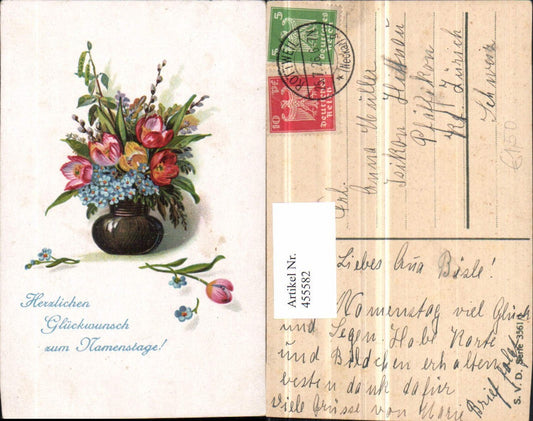 Herzlichen
Glückwunsch
zum Namenstage!
5 Deutsches Reich 5
10 Pf.
Deutsches
Reich
ROTTWEIL
(Neckar)
Frl.
Anna Müller
Isikon Hittnau
Pfäffikon
Kt. Zürich
Schweiz
Artikel Nr.
455582
Liebes Ana Bäsle!
Namenstag viel Glück
und Segen. Habe Karte
und Bildchen erhalten
besten dank dafür
viele Grüsse von Marie
Brief folgt
S. V. D. Serie 3561